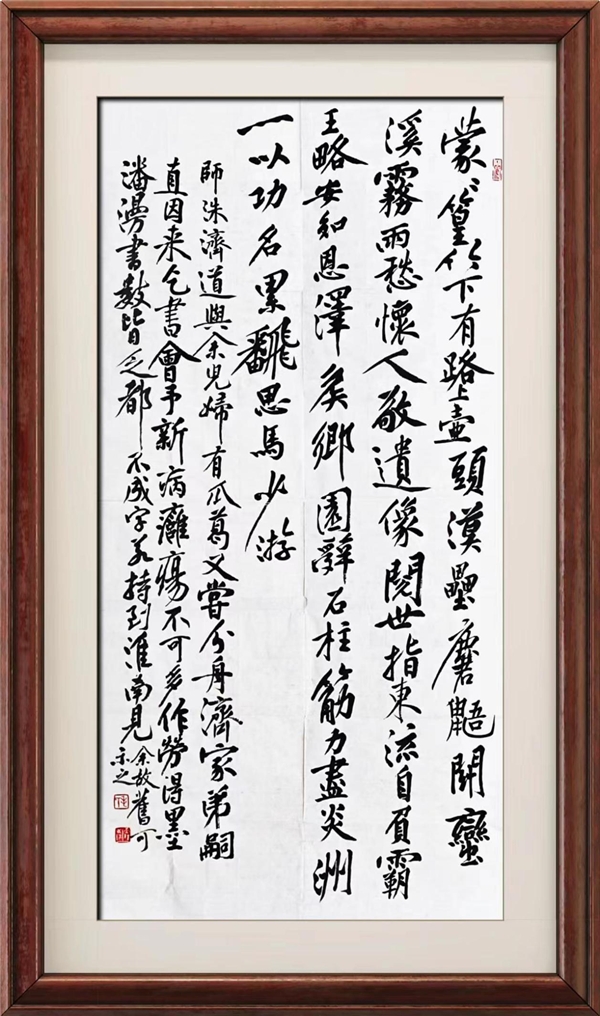 蒙〻篁竹下有路上壺頭漢壘麏鼯鬪蠻
溪霧雨愁懷人敬遺像閱世指東流自負霸
王略安知恩澤矦鄉園辭石柱筋力盡炎洲
一以功名累飜思馬少游
師洙濟道與余兒婦有瓜葛又嘗分舟濟家弟嗣
直因来乞書會予新病癰瘍不可多作勞得墨
潘漫書數皆乏都不成字若持到淮南見余故舊可
示之